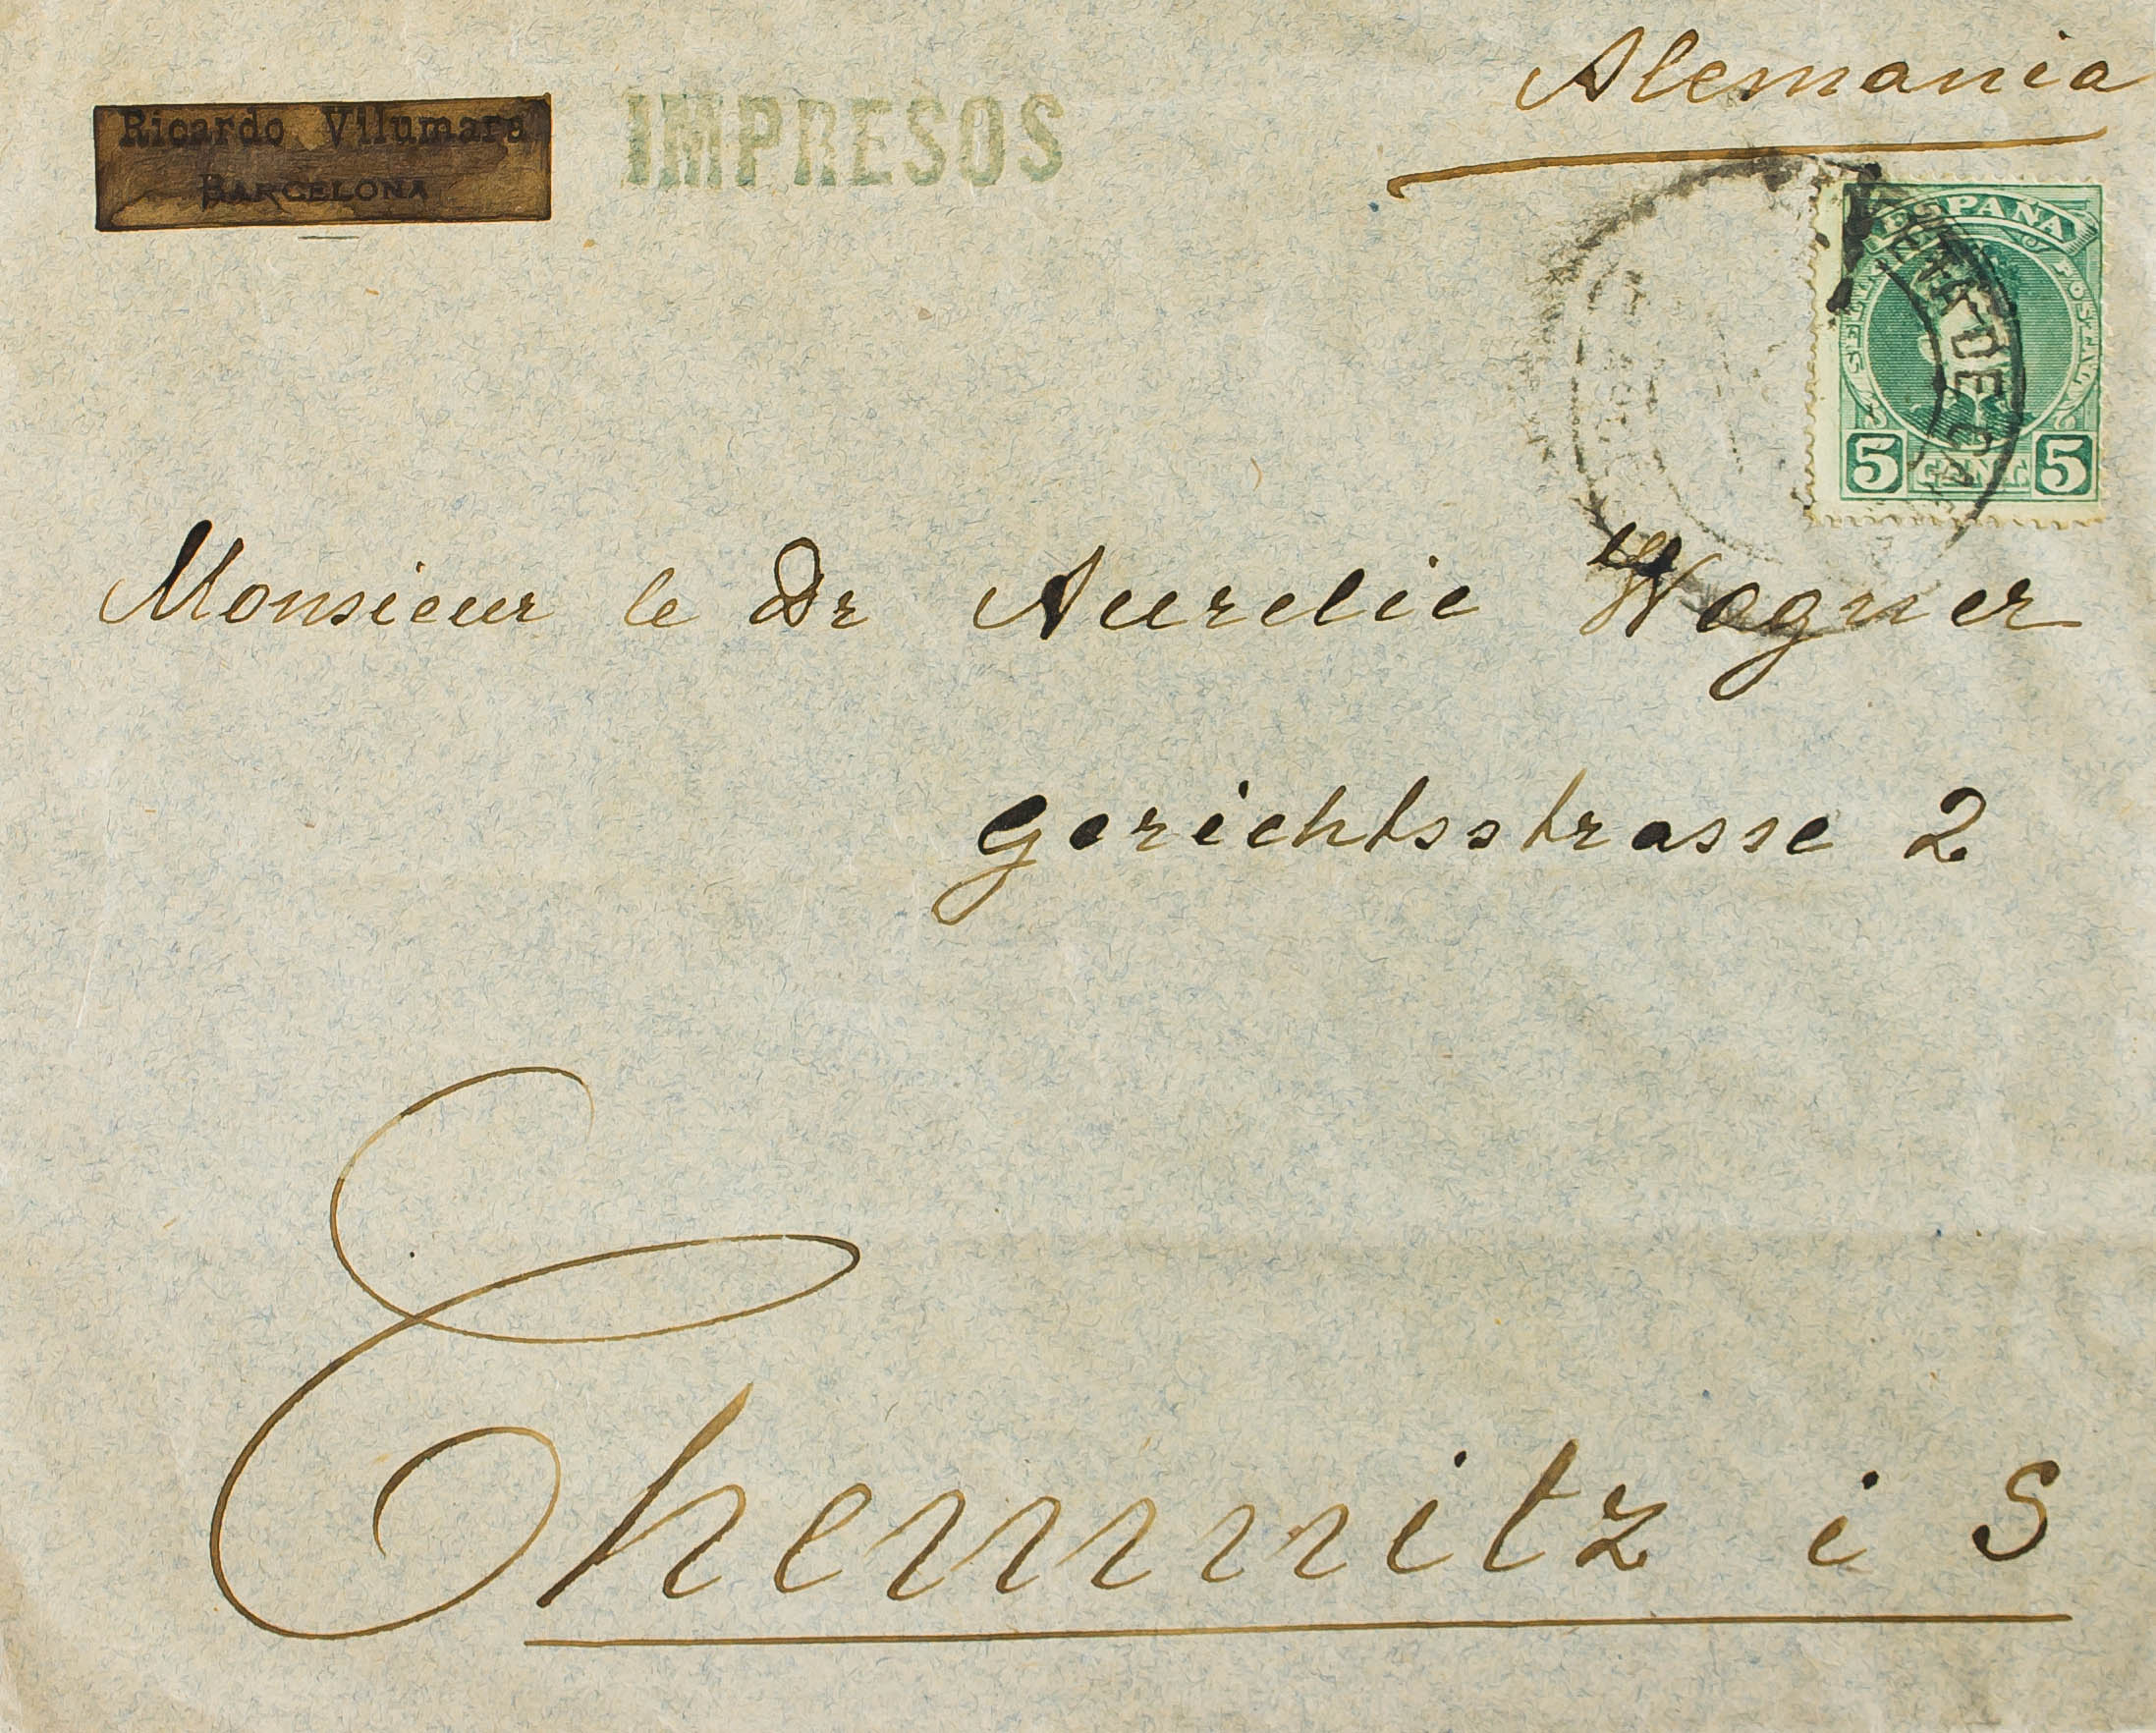 Alemania
Ricardo Vilumara
BARCELONA
IMPRESOS
ESPAÑA
5 CENT. 5
Monsieur le Dr Aurelie Wagner
Gerichtsstrasse 2
Chemnitz i S